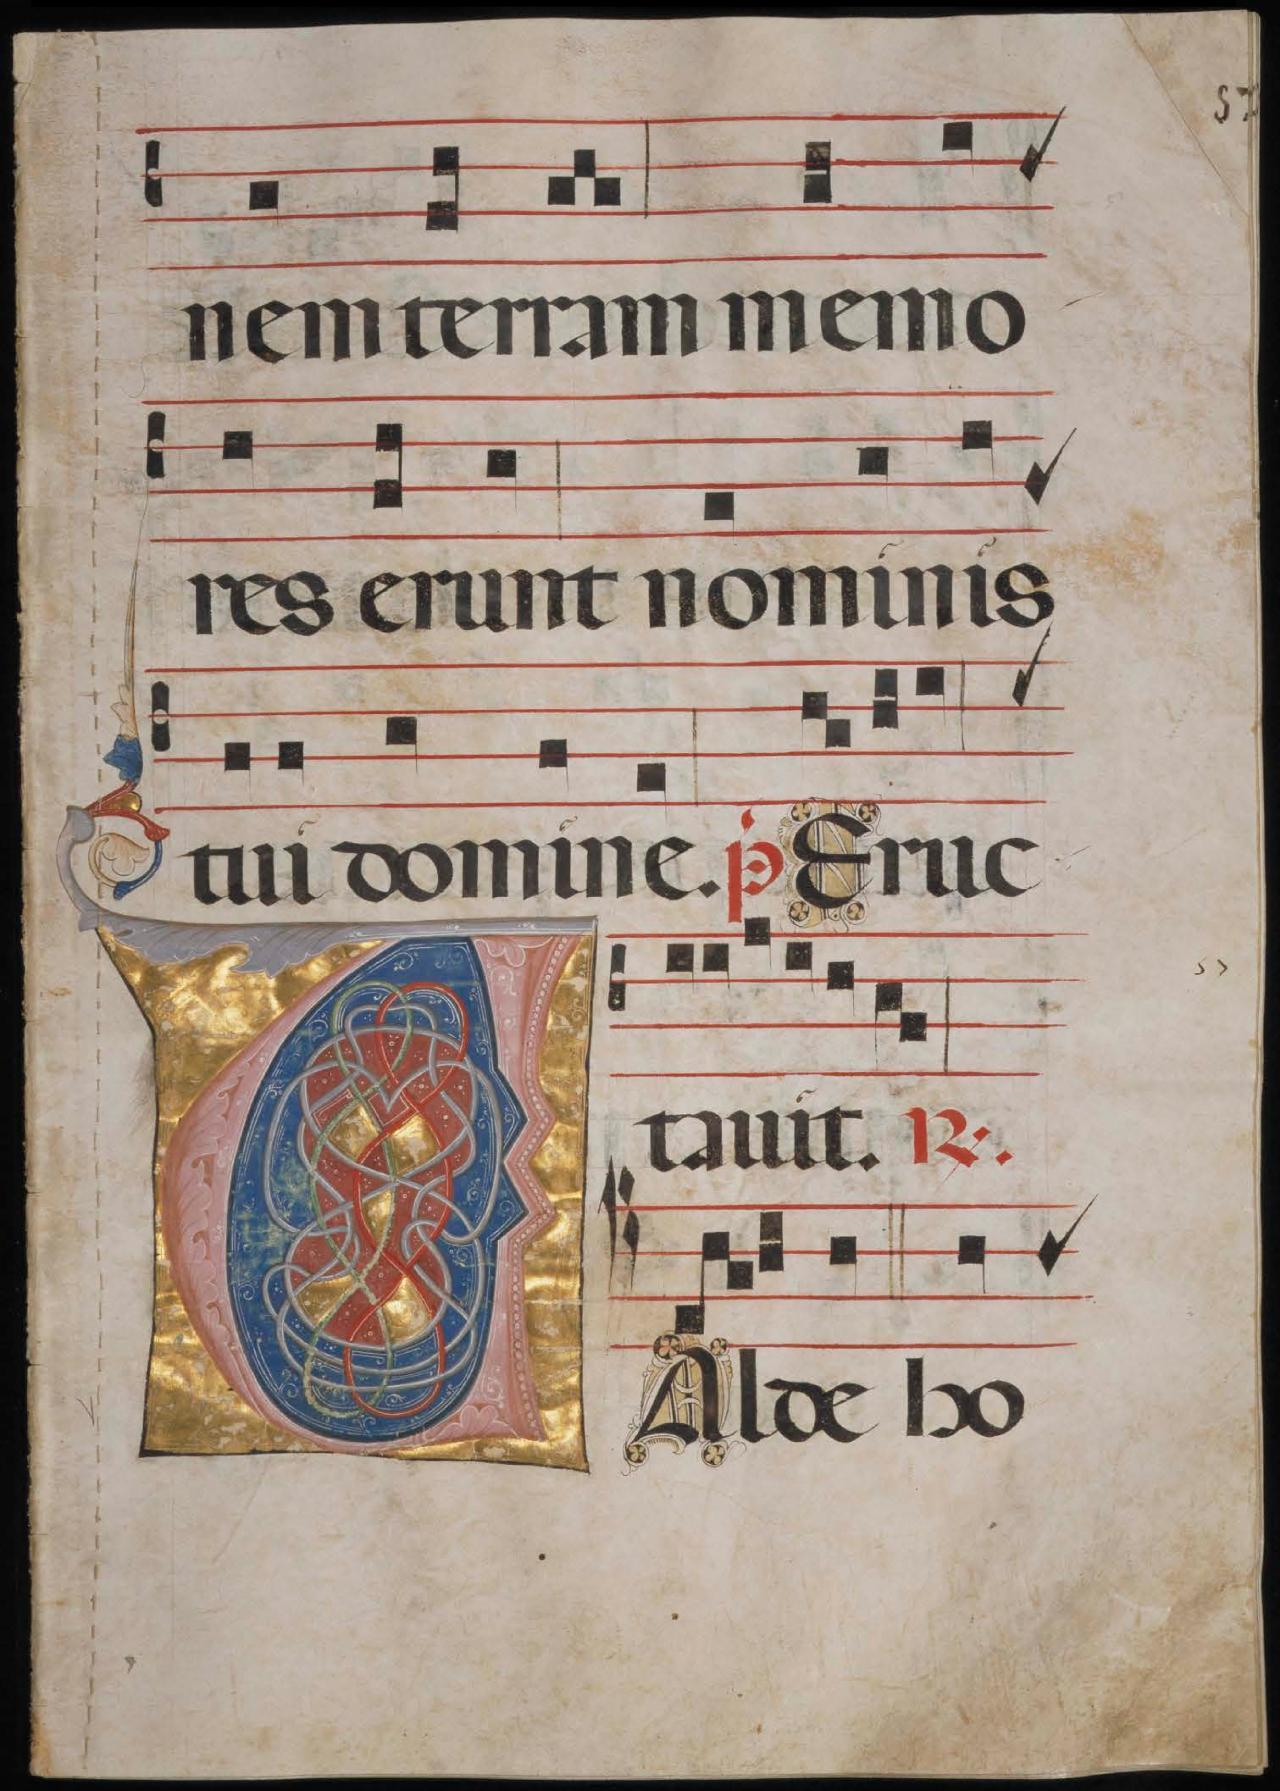 57
nem terram memo
res erunt nominis
tui domine. p̓ Eruc
57
tauit. R.
V Alde ho